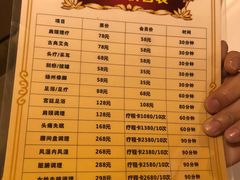 项目 票价 会员价 时间
真颈理疗 78元 58元 30分钟
古典艾灸 78元 58元 30分钟
头疗/采耳 68元 58元 30分钟
刮痧/拔罐 68元 58元 30分钟
扬州修脚 68元 58元 30分钟
足浴/足疗 88元 68元 60分钟
宫廷足浴 128元 108元 80分钟
肩颈调理 128元 疗程卡1080/10次 60分钟
头痛失眠 168元 疗程卡1380/10次 60分钟
腰间盘调理 268元 疗程卡2380/10次 90分钟
风湿内风湿 268元 疗程卡2380/10次 90分钟
脏腑调理 298元 疗程卡2580/10次 90分钟
298元 疗程卡2580/10次 90分钟